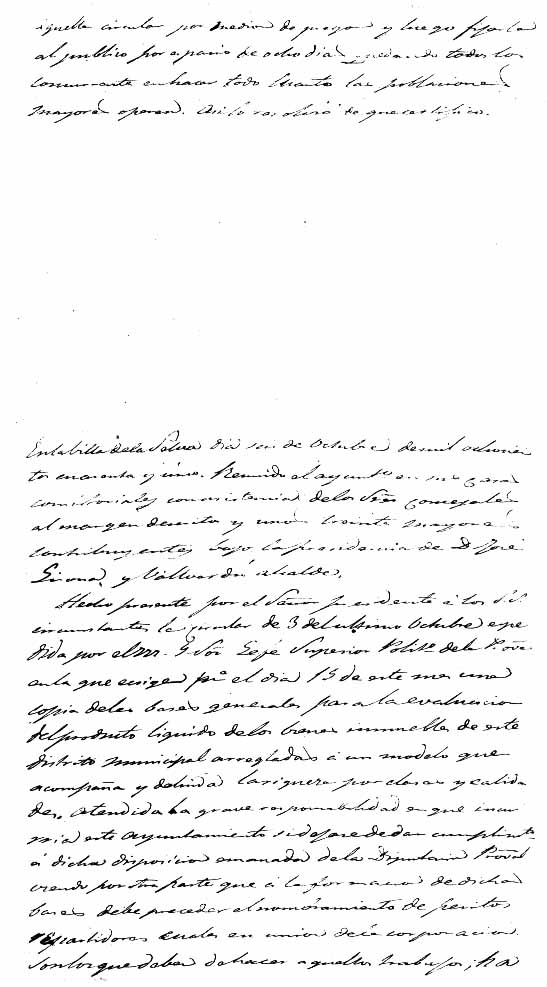 aquella circular por medio de pregon y luego fijarla
al publico por espacio de ocho dias quedando todos los
concurrente en hacer todo cuanto las poblaciones
mayores operen. Asi lo resolvió de que certifico.
En la Villa de la Selva dia seis de Octubre de mil ochocien
tos cuarenta y cinco. Reunido el ayunto en sus casas
consistoriales con asistencia de los Sres concejales
al margen descritos y unos treinta mayores
contribuyentes bajo la presidencia de D José
Girona y Vallverdú alcalde.
Hecho presente por el Señor presidente á los SS.
circunstantes la circular de 3 del ultimo Octubre espe
dida por el M. Y. Sor Gefe Superior Polito de la Prova
en la que exige pa el dia 15 de este mes una
copia de las bases generales para la evaluacion
del producto liquido de los bienes inmuebles de este
distrito municipal arregladas á un modelo que
acompaña y dividida la riqueza por clases y calida
des. Atendida la grave responsabilidad en que incur
riria este Ayuntamiento si dejase de dar cumplimto
á dicha disposicion emanada de la Diputacion Proval
viendo por otra parte que á la formacion de dichas
bases debe preceder el nombramiento de peritos
repartidores cuales en union de la corporacion
son los que deben de hacer aquellos trabajos; ha